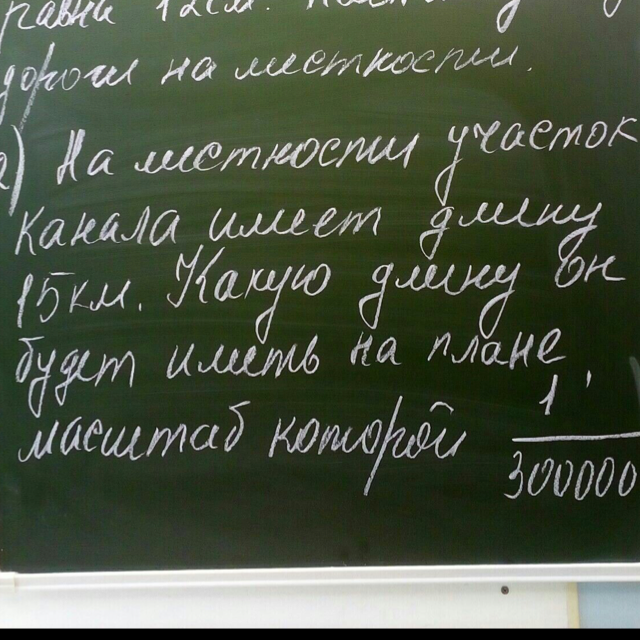 равна 12см.
дороги на местности.
2) На местности участок
канала имеет длину
15км. Какую длину он
будет иметь на плане,
масштаб которой 1
300000